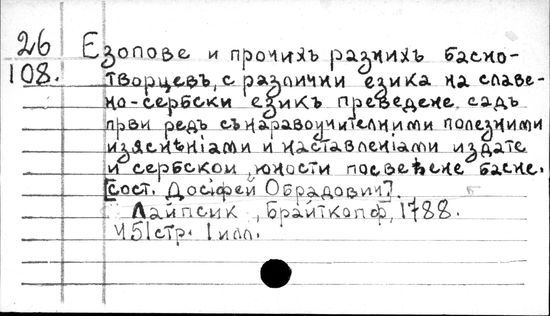 26 Езопове и прочихъ разнихъ басно-
108. творцевъ, с различни езика на славе-
но-сербски езикъ преведене, садъ
први редъ сънаравоучителними полезними
изяснѣніами и наставленіами издате
и сербской юности посвећене басне.
[Сост. Досіфей Обрадович].
Лайпсик, Брайткопф, 1788.
451стр. 1 илл.